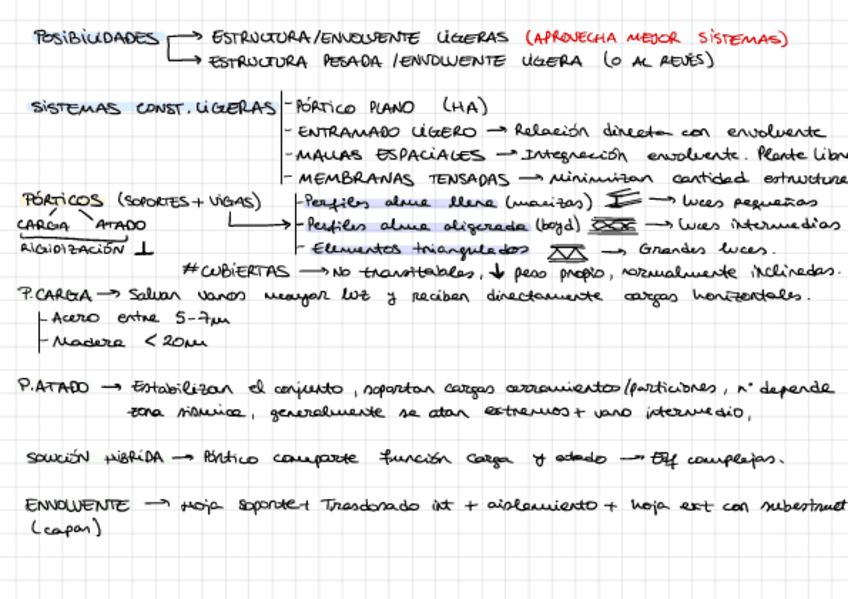 POSIBILIDADES → ESTRUCTURA/ENVOLVENTE LIGERAS (APROVECHA MEJOR SISTEMAS)
→ ESTRUCTURA PESADA /ENVOLVENTE LIGERA (O AL REVÉS)
SISTEMAS CONST. LIGERAS - PÓRTICO PLANO (HA)
- ENTRAMADO LIGERO → Relación directa con envolvente
- MALLAS ESPACIALES → Integración envolvente. Planta libre
- MEMBRANAS TENSADAS → Minimizan cantidad estructura
PÓRTICOS (SOPORTES + VIGAS) - Perfiles alma llena (macizas) → Luces pequeñas
CARGA ATADO → - Perfiles alma aligerada (boyd) → Luces intermedias
RIGIDIZACIÓN ⊥ - Elementos triangulados → Grandes luces.
# CUBIERTAS → No transitables, ↓ peso propio, normalmente inclinadas.
P.CARGA → Salvan vanos mayor luz y reciben directamente cargas horizontales.
- Acero entre 5-7m
- Madera < 20m
P.ATADO → Estabilizan el conjunto, soportan cargas cerramientos/particiones, nº depende
zona sísmica, generalmente se atan extremos + vano intermedio,
SOLUCIÓN HÍBRIDA → Pórtico comparte función carga y atado → complejas.
ENVOLVENTE → Hoja soporte + Trasdosado int + aislamiento + hoja ext con subestruct
(capas)